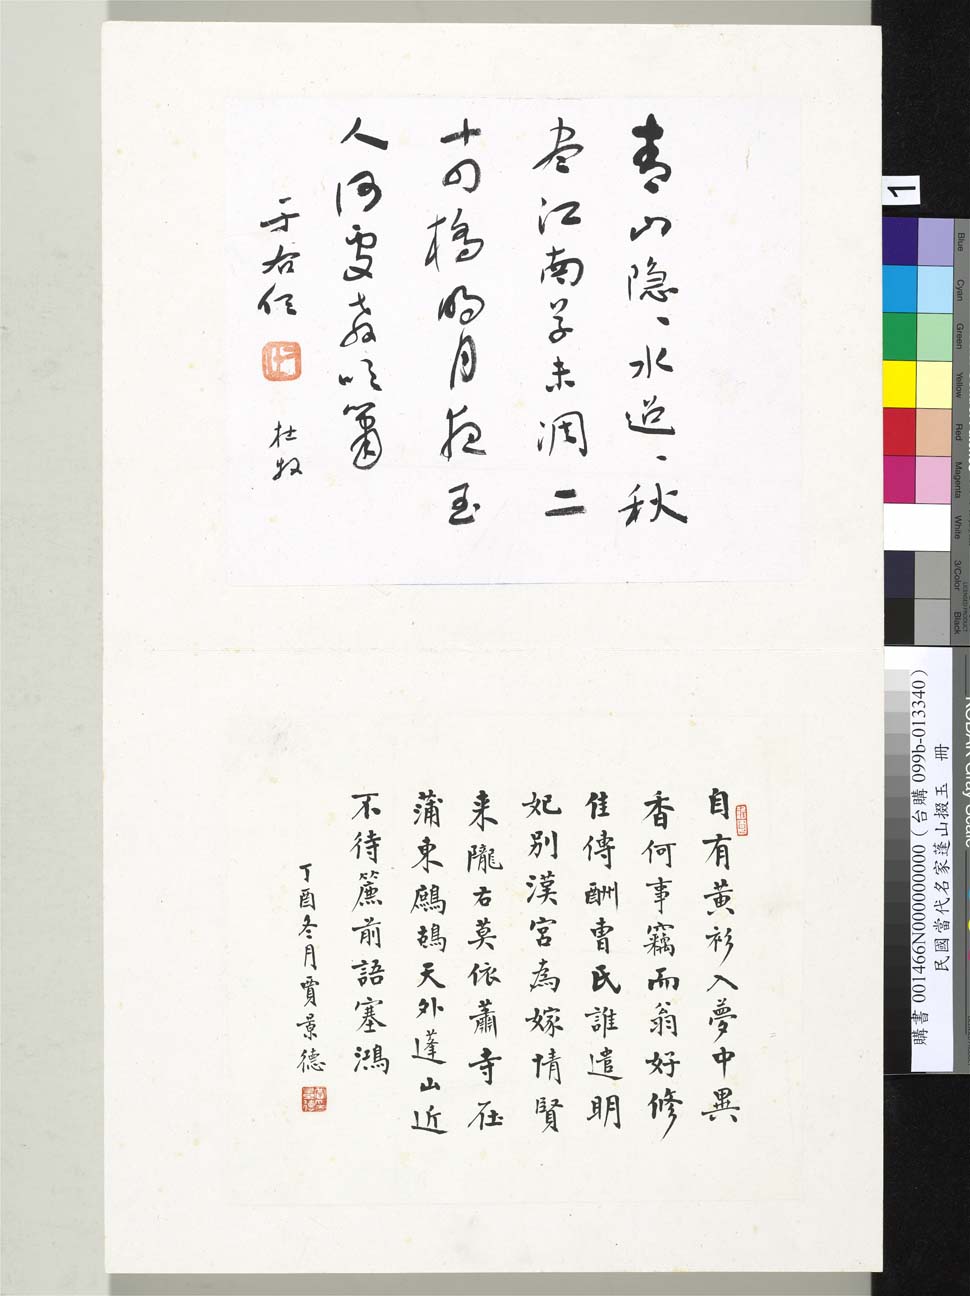 青山隱、水迢、秋
盡江南草未凋二
十四橋明月夜玉
人何處教吹簫
于右任
杜牧
自有黃衫入夢中異
香何事竊而翁好修
佳傳酬曹氏誰遣明
妃別漢宮為嫁情賢
来隴右莫依蕭寺在
蒲東鷓鴣天外蓬山近
不待簾前語塞鴻
丁酉冬月賈景德
1
Blue
Cyan
Green
Yellow
Red
Magenta
White
3/Color
Black
購書 001466N000000000 (台購 099b-013340)
民國當代名家蓬山掇玉 冊